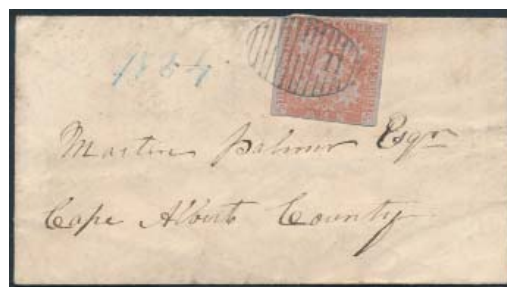 11
Martin Palmer Esqr
Cape Albert County